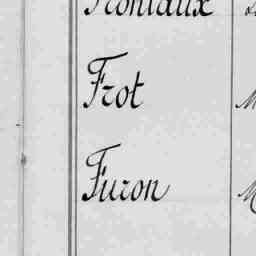 Frontaux
Frot
Furon